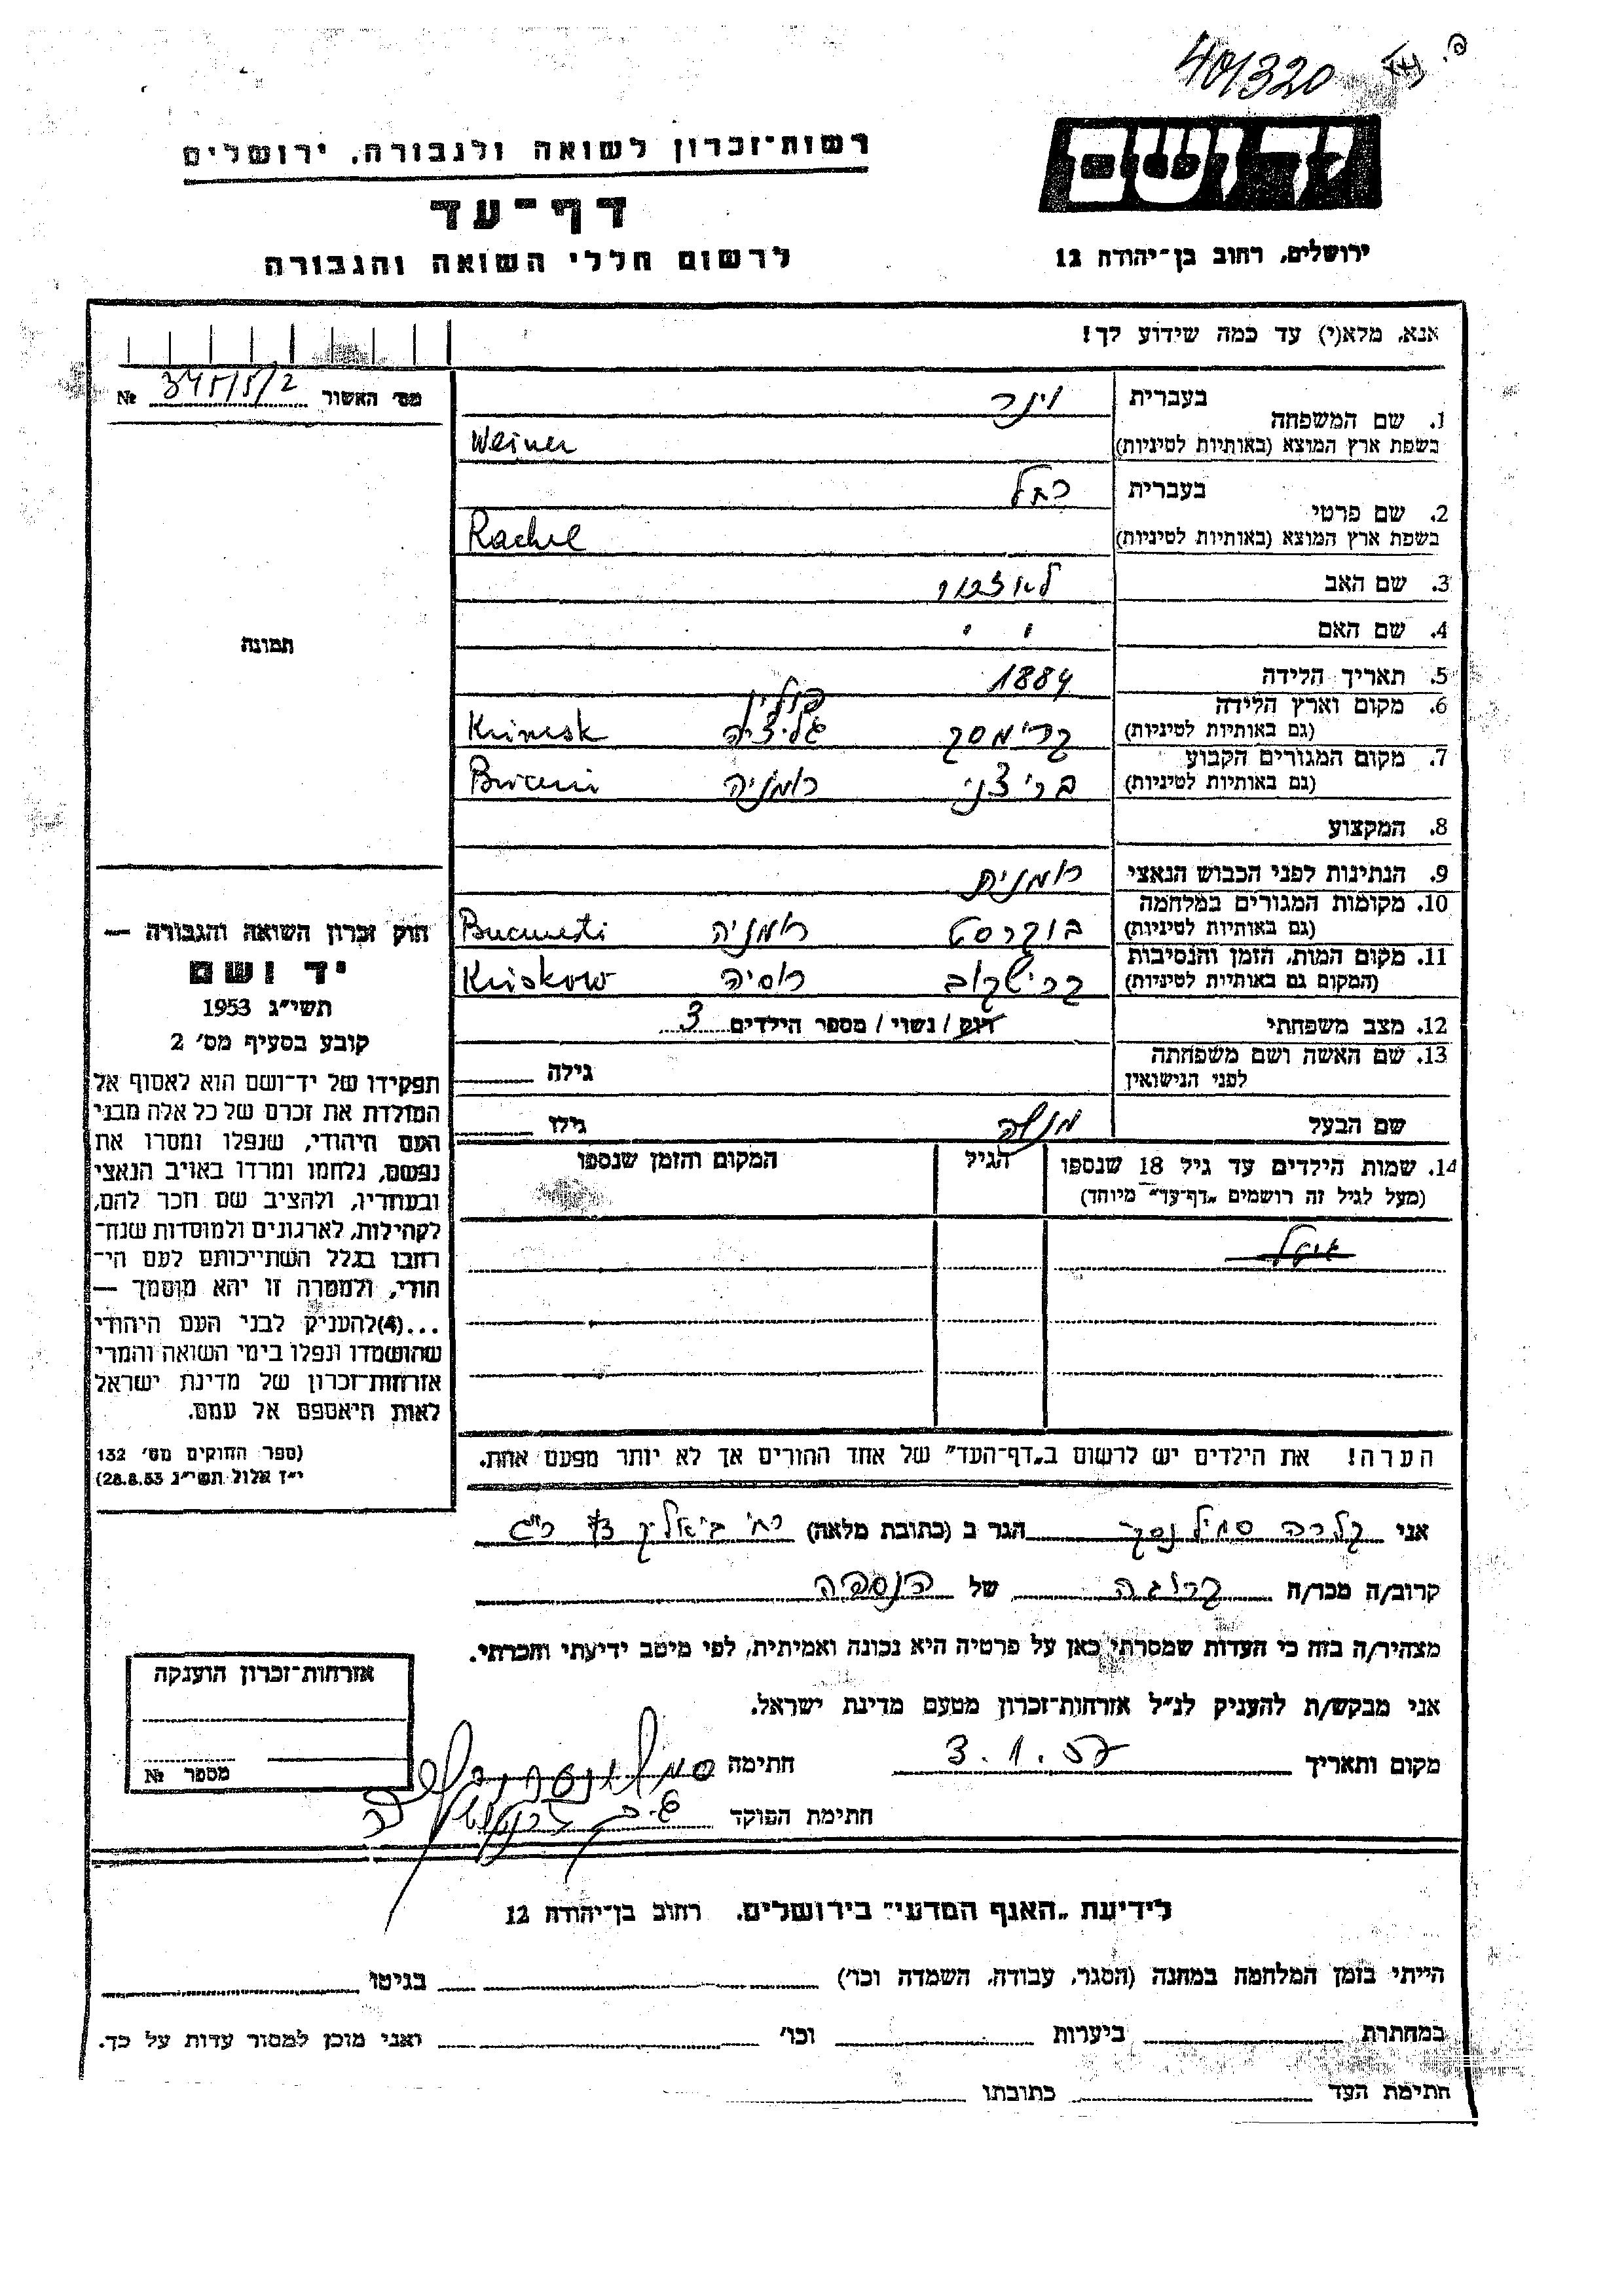 401320
רשות־זכרון לשואה ולגבורה, ירושלים
יד ושם
דף־עד
לרשום חללי השואה והגבורה
ירושלים, רחוב בן־יהודה 12
אנא, מלא(י) עד כמה שידוע לך!
מס׳ האשור 345/5/2 №
1. שם המשפחה בעברית וינר
בשפת ארץ המוצא (באותיות לטיניות) Weiner
2. שם פרטי בעברית רחל
בשפת ארץ המוצא (באותיות לטיניות) Rachel
3. שם האב
4. שם האם
תמונה
5. תאריך הלידה 1884
6. מקום וארץ הלידה פולין
(גם באותיות לטיניות) גליציה
7. מקום המגורים הקבוע
(גם באותיות לטיניות) בריצני רומניה
8. המקצוע
9. הנתינות לפני הכבוש הנאצי רומנית
10. מקומות המגורים במלחמה
(גם באותיות לטיניות) בוקרסט רומניה Bucuresti
11. מקום המות, הזמן והנסיבות
(המקום גם באותיות לטיניות) קרישקוב רוסיה Kriskow
12. מצב משפחתי רווק / נשוי / מספר הילדים 3
13. שם האשה ושם משפחתה
לפני הנישואין גילה
שם הבעל מנשה גילו
14. שמות הילדים עד גיל 18 שנספו הגיל המקום והזמן שנספו
(מעל לגיל זה רושמים „דף־עד״ מיוחד)
הערה! את הילדים יש לרשום ב„דף־העד״ של אחד ההורים אך לא יותר מפעם אחת.
חוק זכרון השואה והגבורה —
יד ושם
תשי״ג 1953
קובע בסעיף מס׳ 2
תפקידו של יד־ושם הוא לאסוף אל
המולדת את זכרם של כל אלה מבני
העם היהודי, שנפלו ומסרו את
נפשם, נלחמו ומרדו באויב הנאצי
ובעוזריו, ולהציב שם וזכר להם,
לקהילות, לארגונים ולמוסדות שנח־
רבו בגלל השתייכותם לעם הי־
הודי, ולמטרה זו יהא מוסמך —
...(4)להעניק לבני העם היהודי
שהושמדו ונפלו בימי השואה והמרי
אזרחות־זכרון של מדינת ישראל
לאות היאספם אל עמם.
(ספר החוקים מס׳ 132
י״ז אלול תשי״ג 28.8.53)
אני קלרה הגר ב (כתובת מלאה) רח׳ ביאליק ר״ג
קרוב/ה מכר/ה קרובה של הנספה
מצהיר/ה בזה כי העדות שמסרתי כאן על פרטיה היא נכונה ואמיתית, לפי מיטב ידיעתי והכרתי.
אני מבקש/ת להעניק לנ״ל אזרחות־זכרון מטעם מדינת ישראל.
מקום ותאריך 3.1.57 חתימה
חתימת הפוקד
אזרחות־זכרון הוענקה
מספר №
לידיעת „האגף המדעי״ בירושלים, רחוב בן־יהודה 12
הייתי בזמן המלחמה במחנה (הסגר, עבודה, השמדה וכו׳) בגיטו
במחתרת ביערות וכו׳ ואני מוכן למסור עדות על כך.
חתימת העד כתובתו